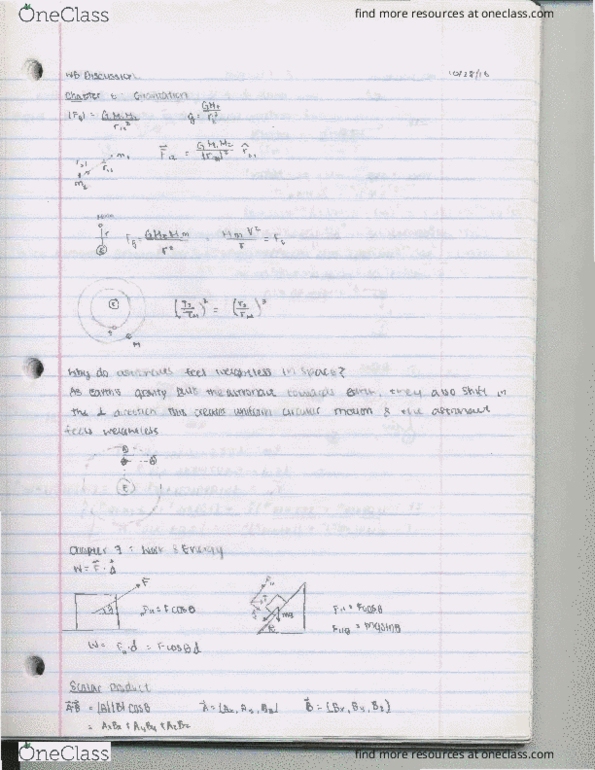 OneClass
find more resources at oneclass.com
W5 Discussion
Chapter 6 Gravitation
|Fg| = G M1 M2 / r12² g = GME / r²
F12 = G M1 M2 / |r21|² r̂21
r21 r12 m1
m2
r Fg = G ME Mm / r² , Mm V² / r = Fg
E
E (T / TM)² = (r / rM)³
M
Why do astronauts feel weightless in space?
As Earth's gravity pulls the astronaut towards Earth, they also shift in
the ⊥ direction this creates uniform circular motion & the astronaut
feels weightless
E
Chapter 7 : Work & Energy
W = F · d
F F|| = F cosθ F|| mg θ F|| = Fcosθ
F||g = mgsinθ
W = F|| · d = F cosθ d
Scalar Product
A·B = |A||B| cosθ A = (Ax, Ay, Az) B = (Bx, By, Bz)
= AxBx + AyBy + AzBz
OneClass
find more resources at oneclass.com